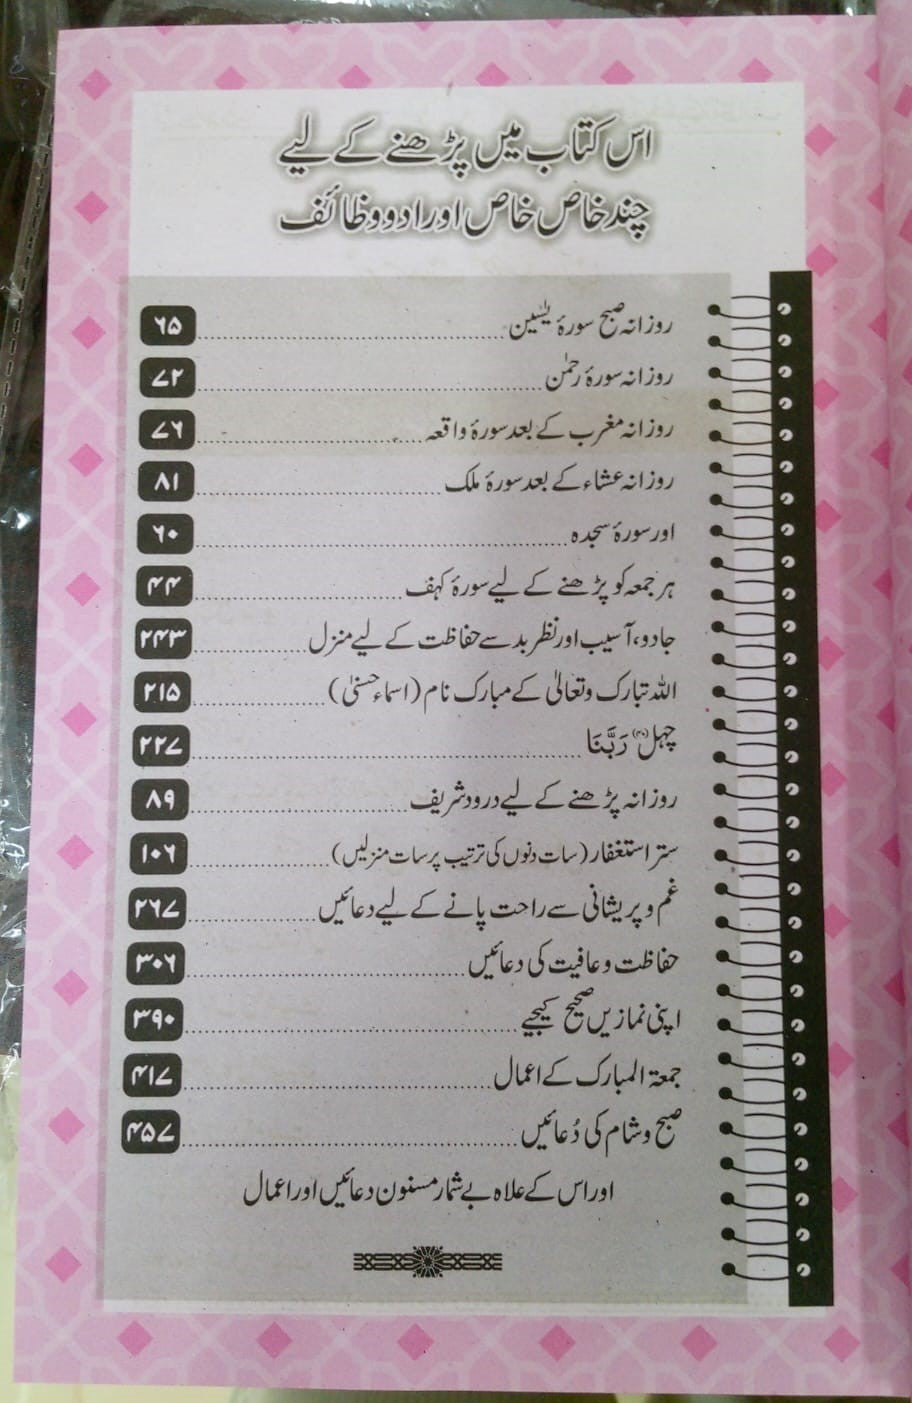 اس کتاب میں پڑھنے کے لیے
چند خاص خاص اوراد و وظائف
روزانہ صبح سورۂ یٰسین ۶۵
روزانہ سورۂ رحمٰن ۷۲
روزانہ مغرب کے بعد سورۂ واقعہ ۷۶
روزانہ عشاء کے بعد سورۂ ملک ۸۱
اور سورۂ سجدہ ۶۰
ہر جمعہ کو پڑھنے کے لیے سورۂ کہف ۴۴
جادو، آسیب اور نظر بد سے حفاظت کے لیے منزل ۲۴۳
اللہ تبارک وتعالیٰ کے مبارک نام (اسماء حسنیٰ) ۲۱۵
چہل (۴۰) رَبَّنَا ۲۲۷
روزانہ پڑھنے کے لیے درود شریف ۸۹
ستر استغفار (سات دنوں کی ترتیب پر سات منزلیں) ۱۰۶
غم و پریشانی سے راحت پانے کے لیے دعائیں ۲۶۷
حفاظت و عافیت کی دعائیں ۳۰۶
اپنی نمازیں صحیح کیجیے ۳۹۰
جمعۃ المبارک کے اعمال ۴۱۷
صبح و شام کی دُعائیں ۴۵۷
اور اس کے علاہ بے شمار مسنون دعائیں اور اعمال